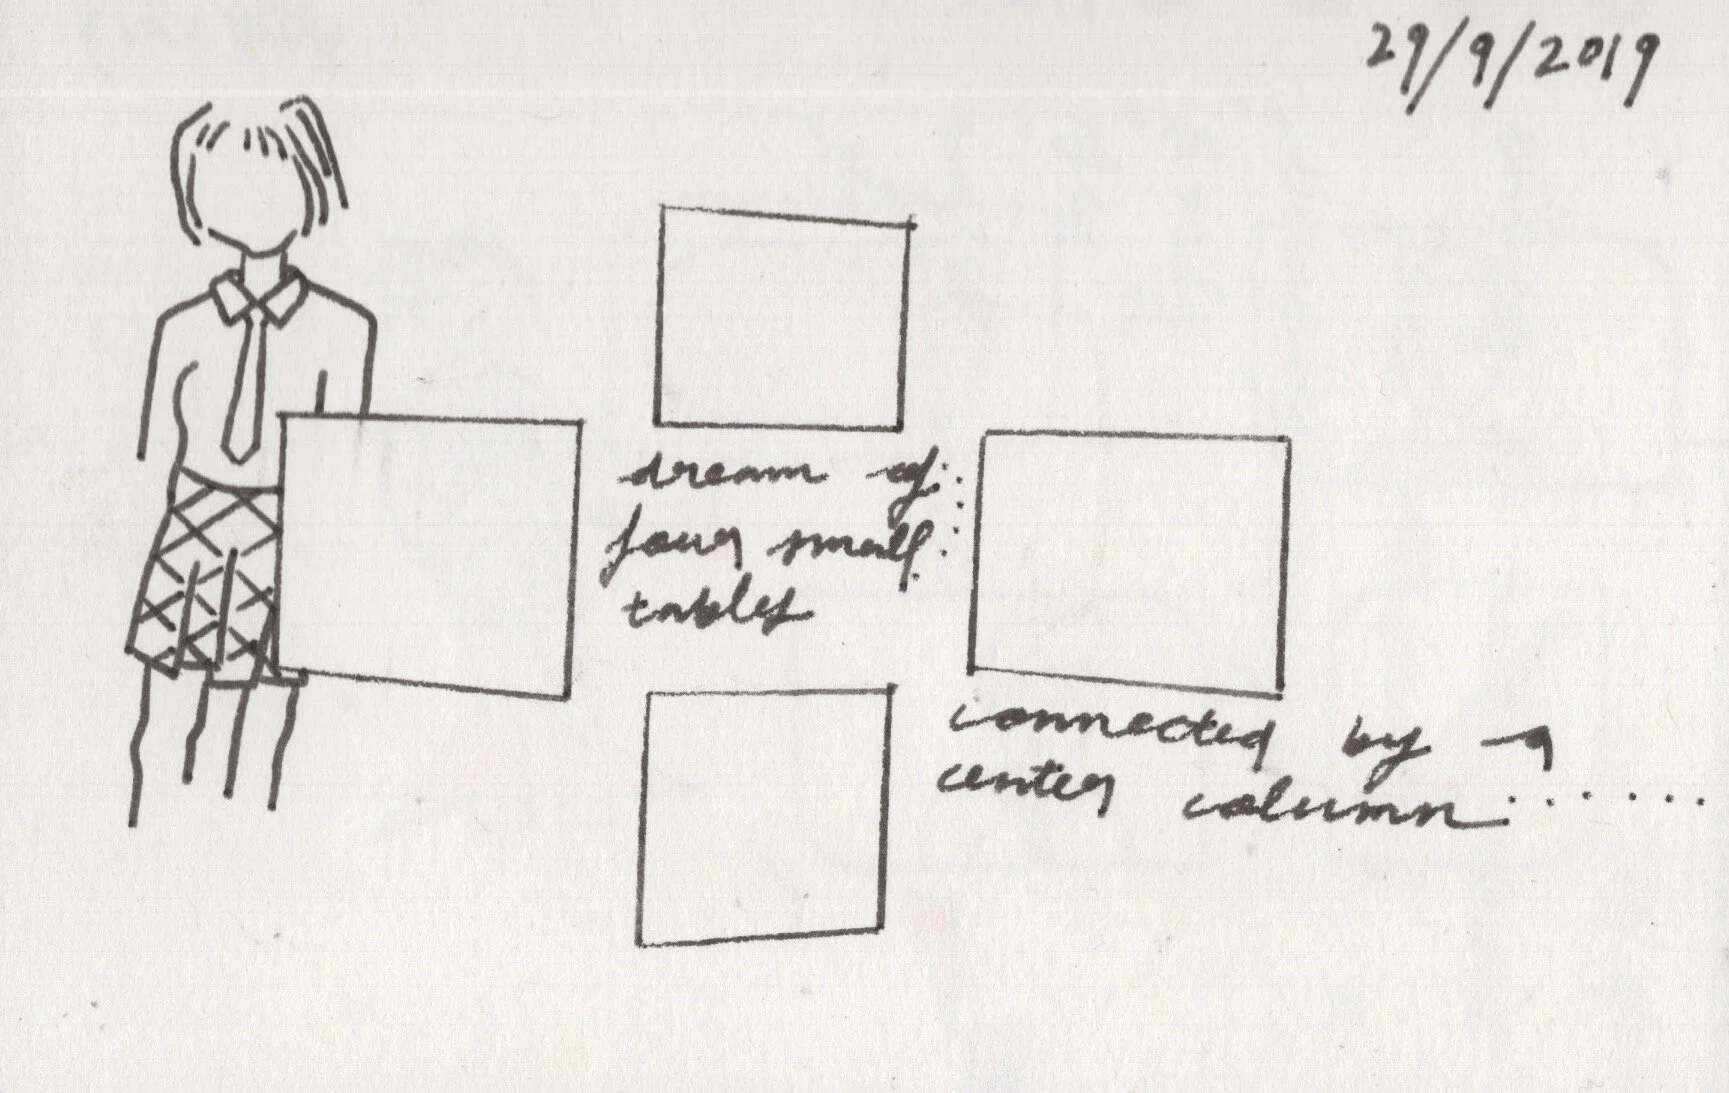 29/9/2019
dream of:
four small
tables
connected by a
center column.......